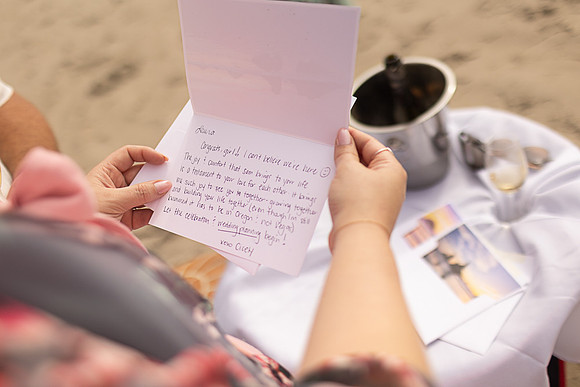 Laura
Congrats, girl! I can't believe we're here ☺
The joy & comfort that Sam brings to your life
is a testament to your love for each other. It brings
me such joy to see you two together - growing together
and building your life together (even though I'm still
bummed it has to be in Oregon & not Vegas)
Let the celebration & wedding planning begin!
xoxo